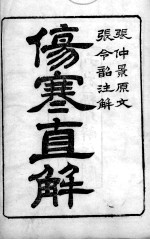 張仲景原文
張令韶注解
傷寒直解